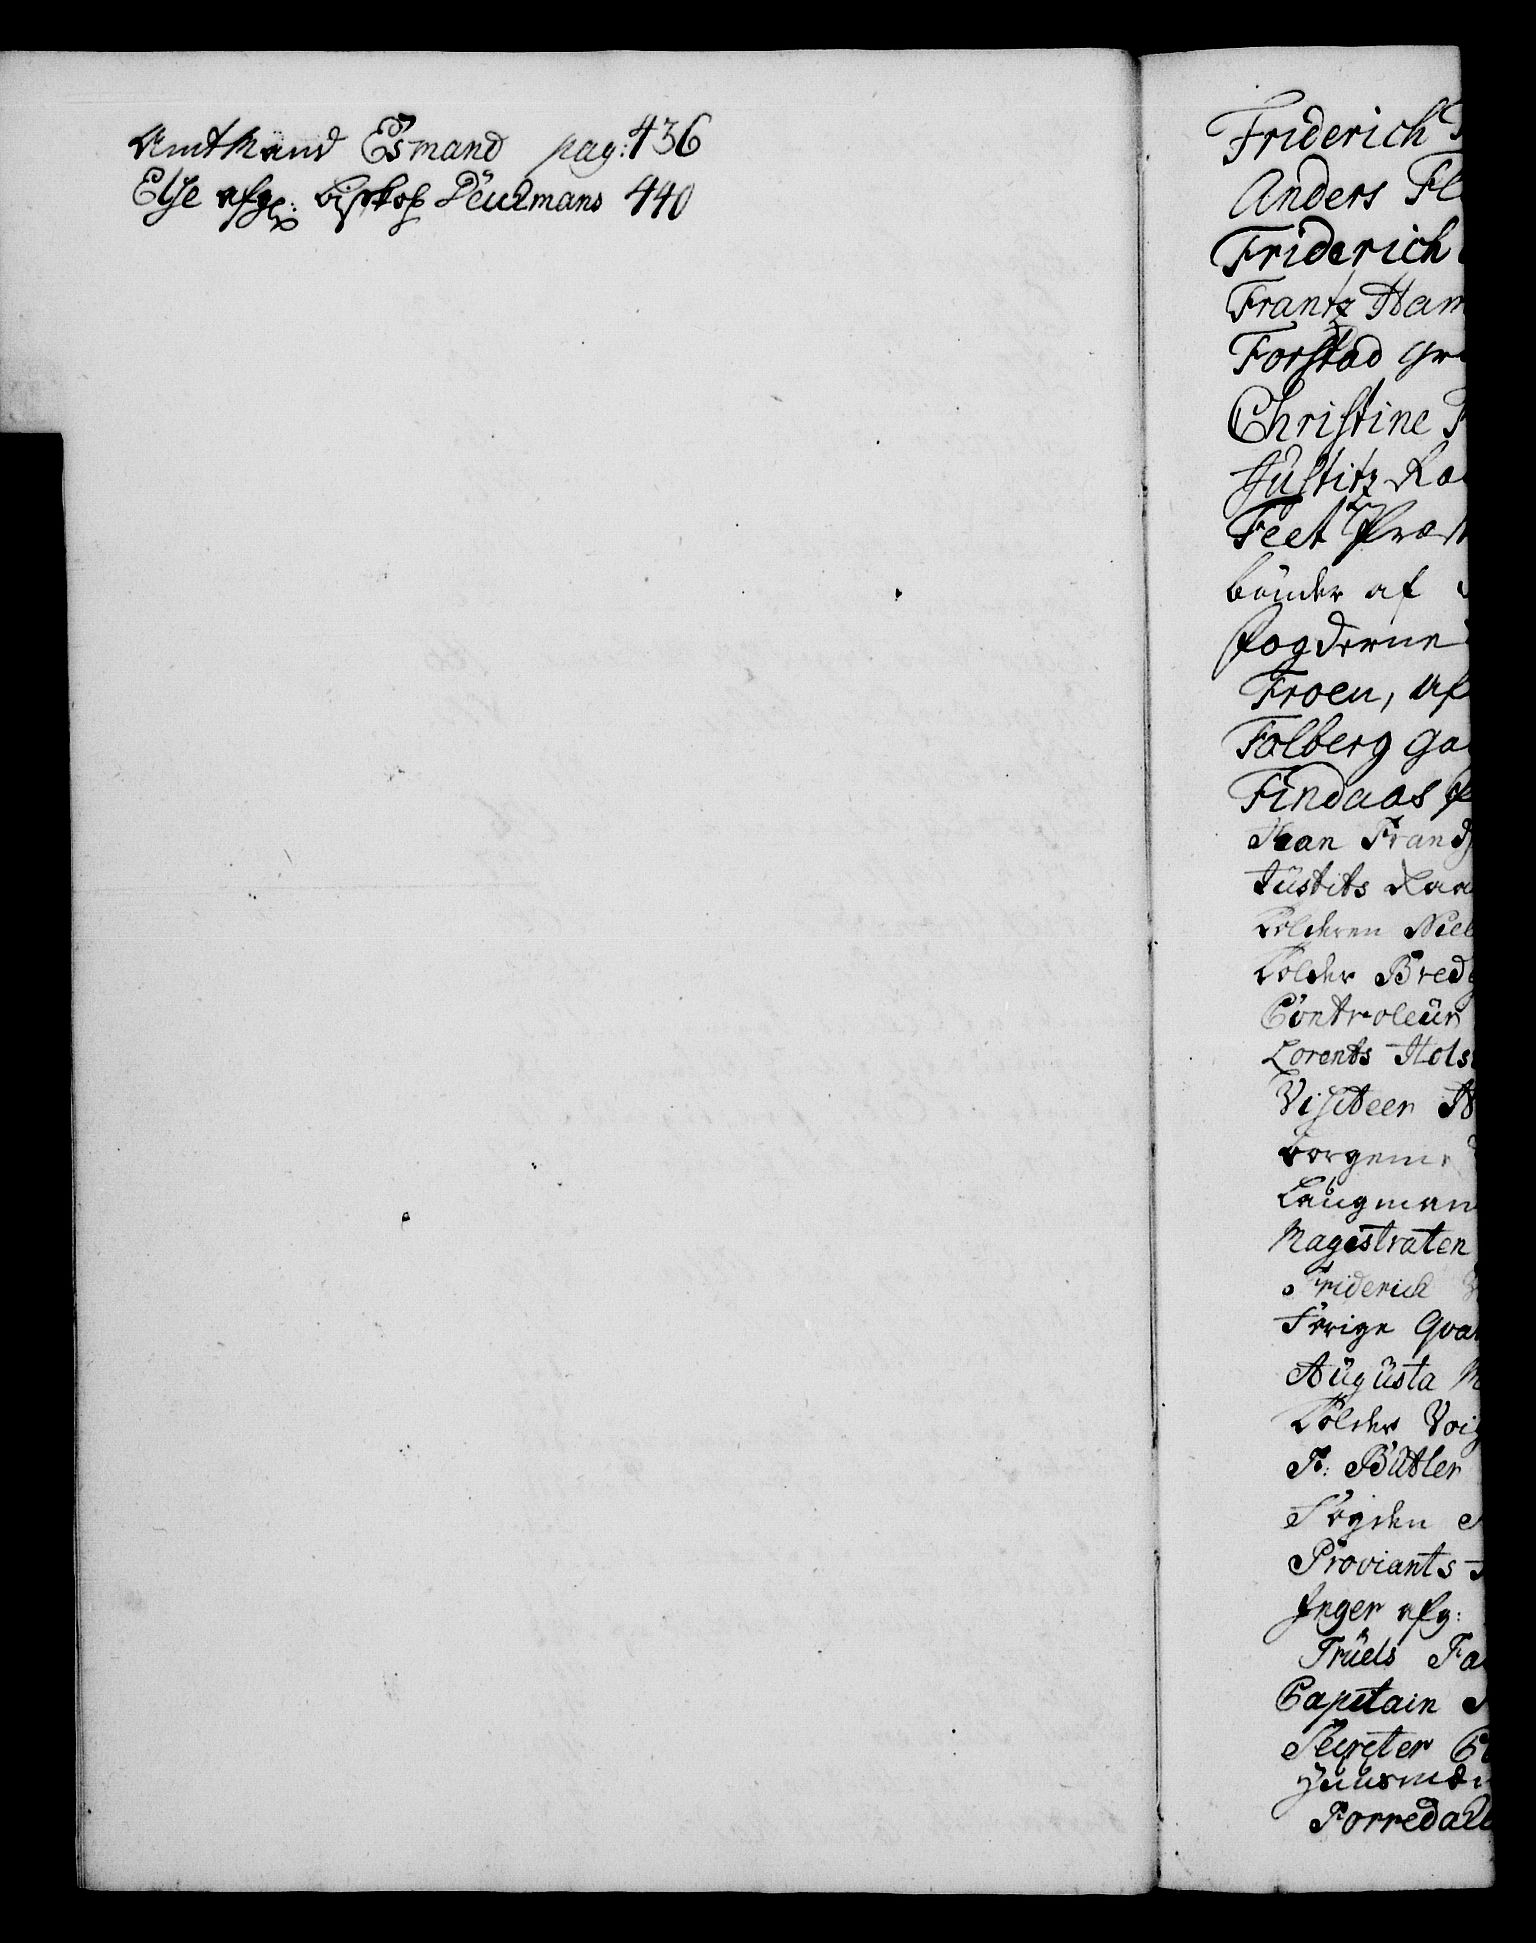 Amtmand Esmand pag: 436
Else afgl: biskop Deuchmans 440
Friderich
Anders Fl
Friderich
Frantz Ham
Forstad gr
Christine
Justitz Ra
Feet Præst
bönder af
fogderne
Froen, af
Folberg ga
Findaas
Jean Frandz
Justits Raa
Tolderen Niel
Tolder Bredg
Controleur
Lorents Hols
Visiteer
borgem:
Laugman
Magistraten
Friderich
Forige Qvar
Augusta M
Tolder Voig
P: Butler
Fogden
Proviants
Inger afg:
Truels Fa
Capitain
Secreter
Huusmæn
Forredal